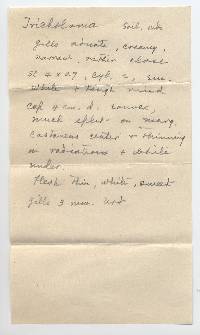 Tricholoma Soil, wds
gills adnate, creamy,
narrow, rather close
St 4 x 0.7, cyl.
White & tough
Cap 4 cm. d. convex,
much split on marg.
castaneus center & thinning
in radiations & white
under.
Flesh thin, white, sweet
gills 3 mm.